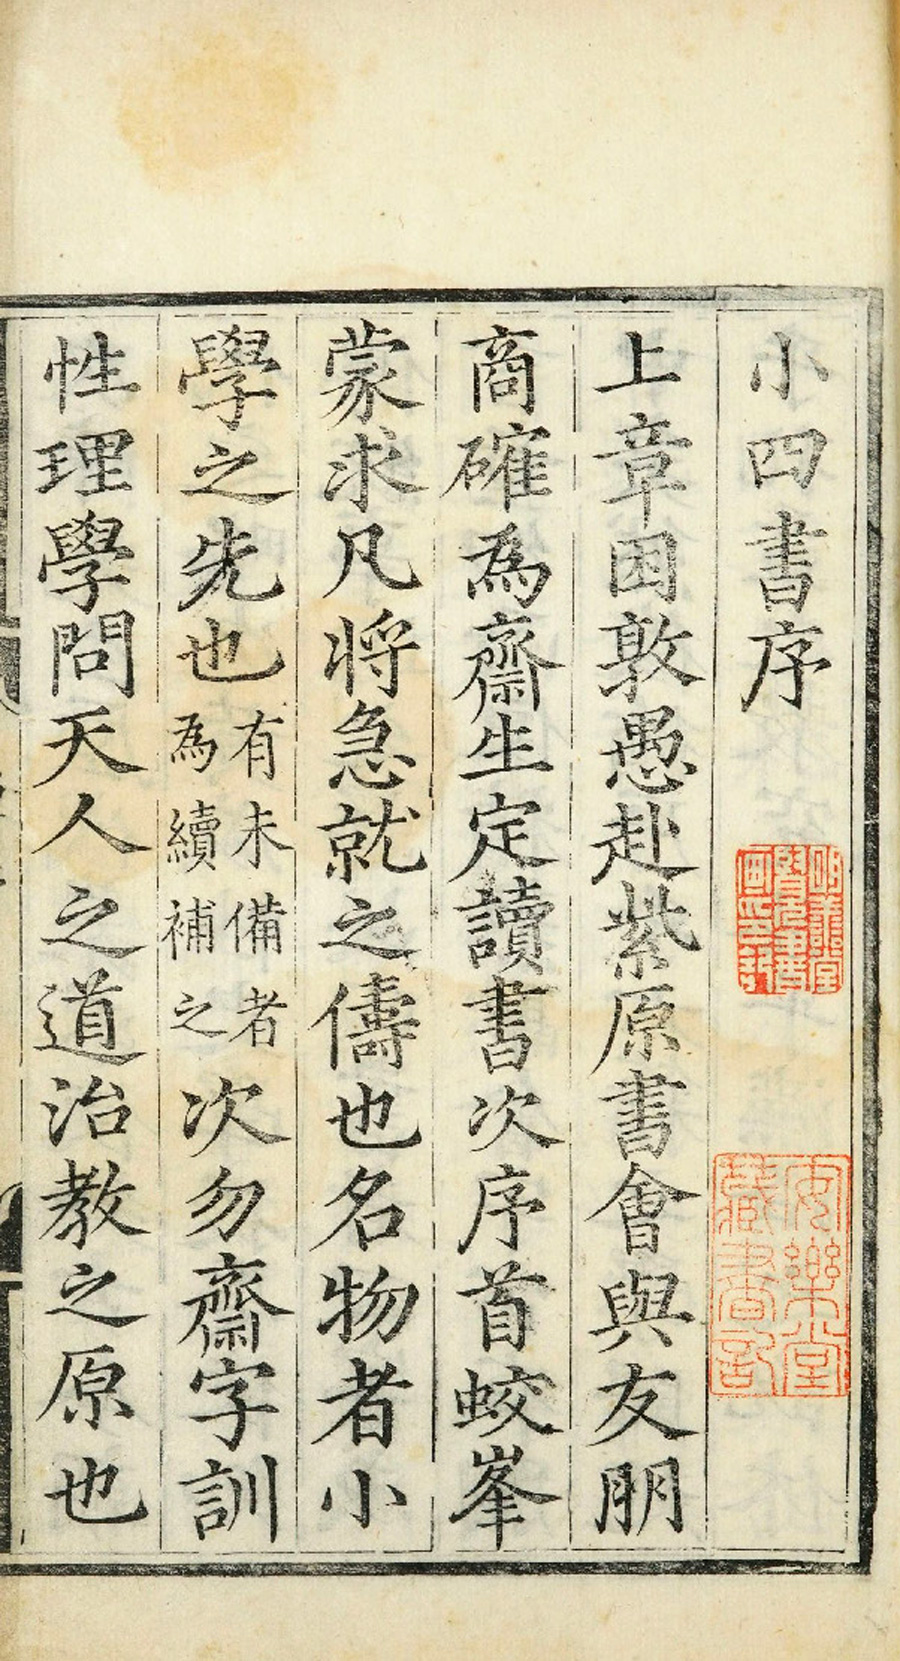 小四書序
上章困敦愚赴紫原書會與友朋
商確為齋生定讀書次序首蛟峯
蒙求凡將急就之儔也名物者小
學之先也有未備者為續補之次勿齋字訓
性理學問天人之道治教之原也
明善堂覽書畫印記
安樂堂藏書記